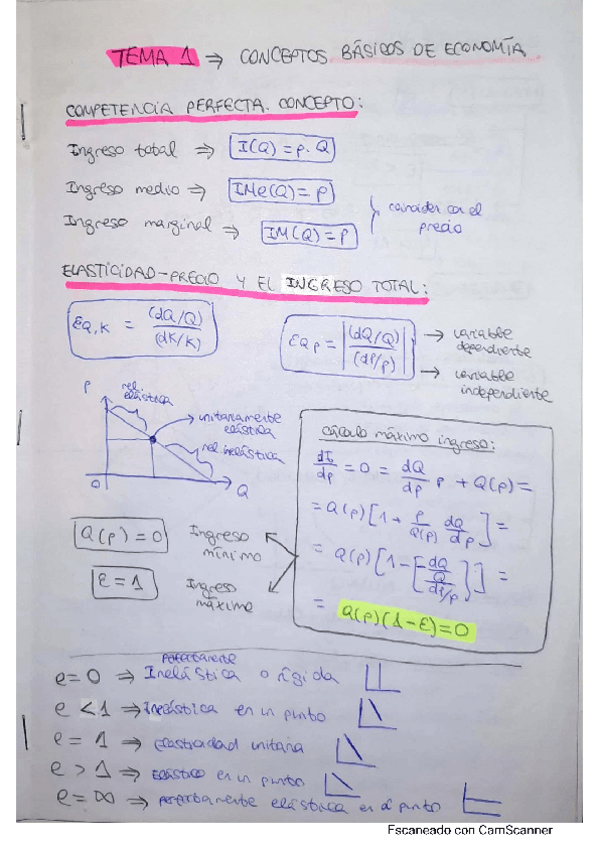 TEMA 1 ⇒ CONCEPTOS BÁSICOS DE ECONOMÍA
COMPETENCIA PERFECTA. CONCEPTO:
Ingreso total ⇒ I(Q) = p · Q
Ingreso medio ⇒ IMe(Q) = p
Ingreso marginal ⇒ IM(Q) = p
coinciden con el
precio
ELASTICIDAD-PRECIO Y EL INGRESO TOTAL:
εQ,K = (dQ/Q) / (dK/K)
εQp = |(dQ/Q) / (dp/p)|
→ variable dependiente
→ variable independiente
P
rel. elástica
→ unitariamente elástica
rel. inelástica
0
Q
cálculo máximo ingreso:
dI/dp = 0 = dQ/dp p + Q(p) =
= Q(p) [1 + p/Q(p) dQ/dp] =
= Q(p) [1 - [-dQ/Q / dp/p]] =
= Q(p)(1-ε) = 0
Q(p) = 0 Ingreso mínimo
ε = 1 Ingreso máximo
perfectamente
e = 0 ⇒ Inelástica o rígida
e < 1 ⇒ inelástica en un punto
e = 1 ⇒ elasticidad unitaria
e > 1 ⇒ elástica en un punto
e = ∞ ⇒ perfectamente elástica en el punto
Escaneado con CamScanner